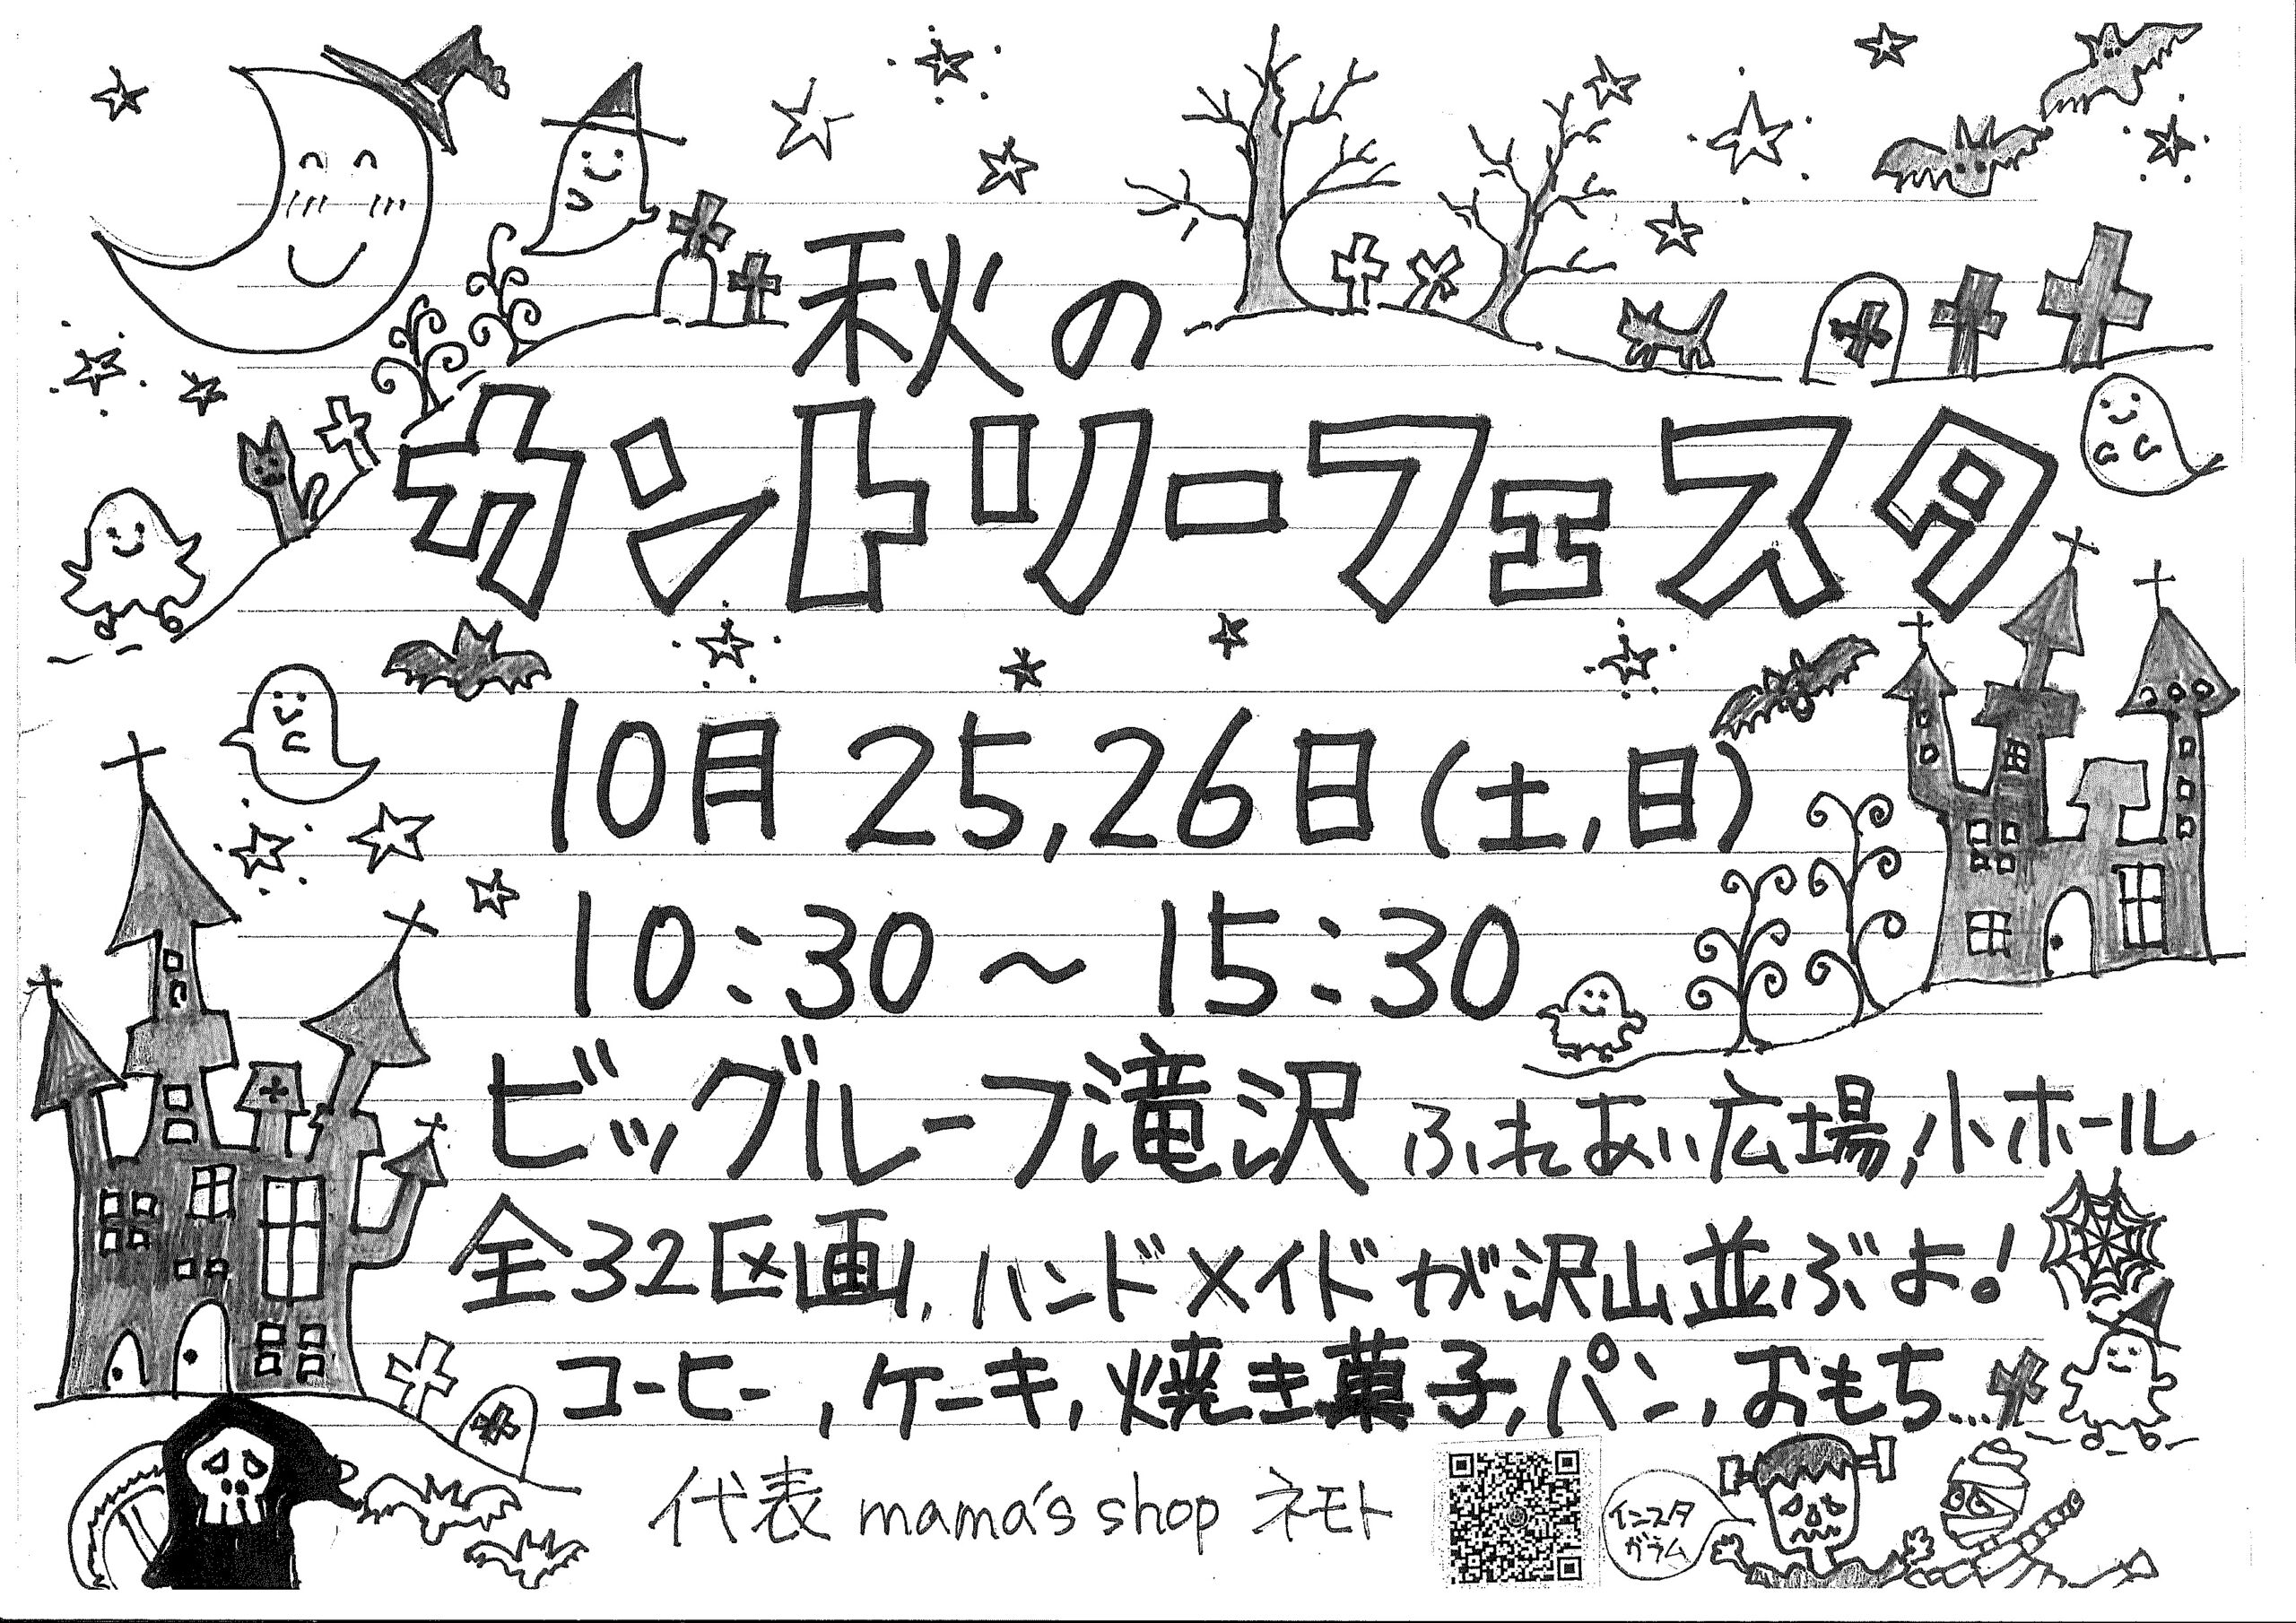 秋の
カントリーフェスタ
10月 25,26日(土,日)
10:30～15:30
ビッグルーフ滝沢 ふれあい広場,小ホール
全32区画, ハンドメイドが沢山並ぶよ!
コーヒー,ケーキ,焼き菓子,パン,おもち...
代表 mama's shop ネモト
インスタ
グラム